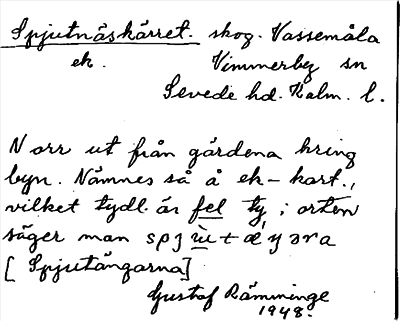 Spjutnäskärret. skog. Vassemåla
ek. Vimmerby sn
Sevede hd. Kalm. l.
Norr ut från gårdena kring
byn. Nämnes så å ek-kart.,
vilket tydl. är fel ty i orten
säger man
[Spjutängarna]
Gustaf Rämminge
1948.